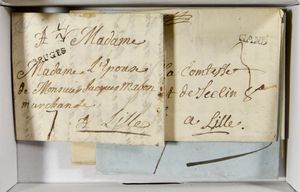 A Madame
BRUGES
Madame L'Epouse
de Monsieur Jacques
marchand
7
à Lille
GAND
la Comtesse
de Seclin
a Lille